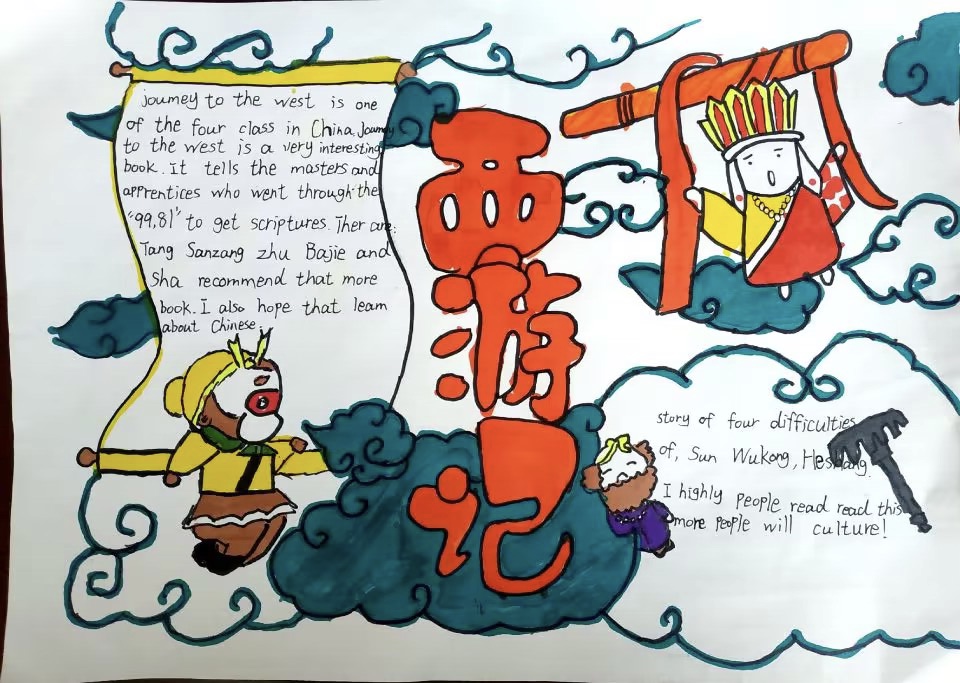 journey to the west is one
of the four class in China, Journey
to the west is a very interesting
book. It tells the masters and
apprentices who went through the
"99,81" to get scriptures. Ther are:
Tang Sanzang zhu Bajie and
Sha recommend that more
book. I also hope that learn
about Chinese.
西游记
story of four difficulties
of, Sun Wukong, Heshang.
I highly people read read this
more people will culture!